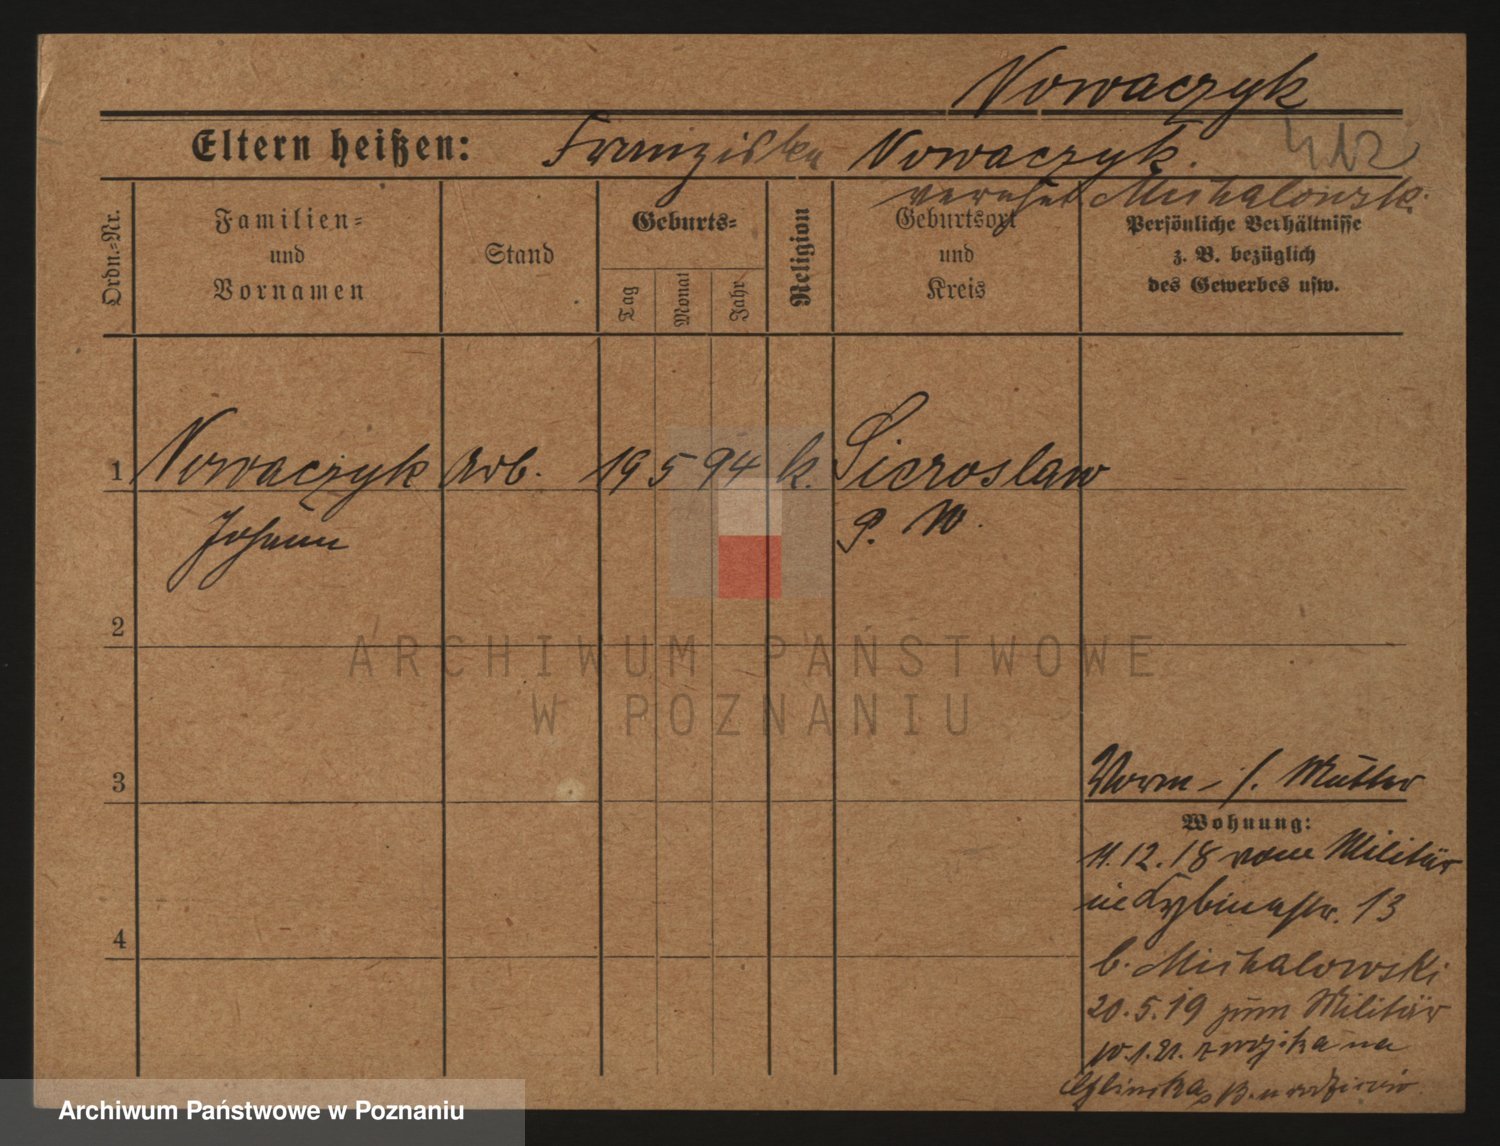 Nowaczyk
Eltern heißen: Franziska Nowaczyk. 412
verehel. Michalowsk.
Ordn.=Nr.
Familien=
und
Vornamen
Stand
Geburts=
Tag
Monat
Jahr
Religion
Geburtsort
und
Kreis
Persönliche Verhältnisse
z. B. bezüglich
des Gewerbes usw.
1 Nowaczyk Arb. 19 5 94 k. Sieroslaw
Johann P. W.
2
ARCHIWUM PAŃSTWOWE
W POZNANIU
3 Vorm - s. Mutter
Wohnung:
11.12.18 vom Militär
13
4 b. Michalowski
20.5.19 zum Militär
10.1.21. z wojska na
Archiwum Państwowe w Poznaniu